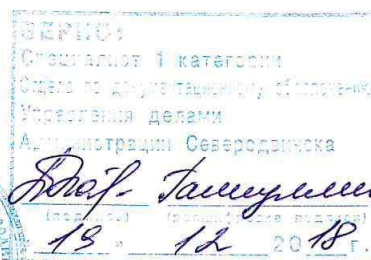 ВЕРНО:
Специалист 1 категории
Отдела по документационному обеспечению
Управления делами
Администрации Северодвинска
(подпись) (расшифровка подписи)
" 19 " 12 2018 г.